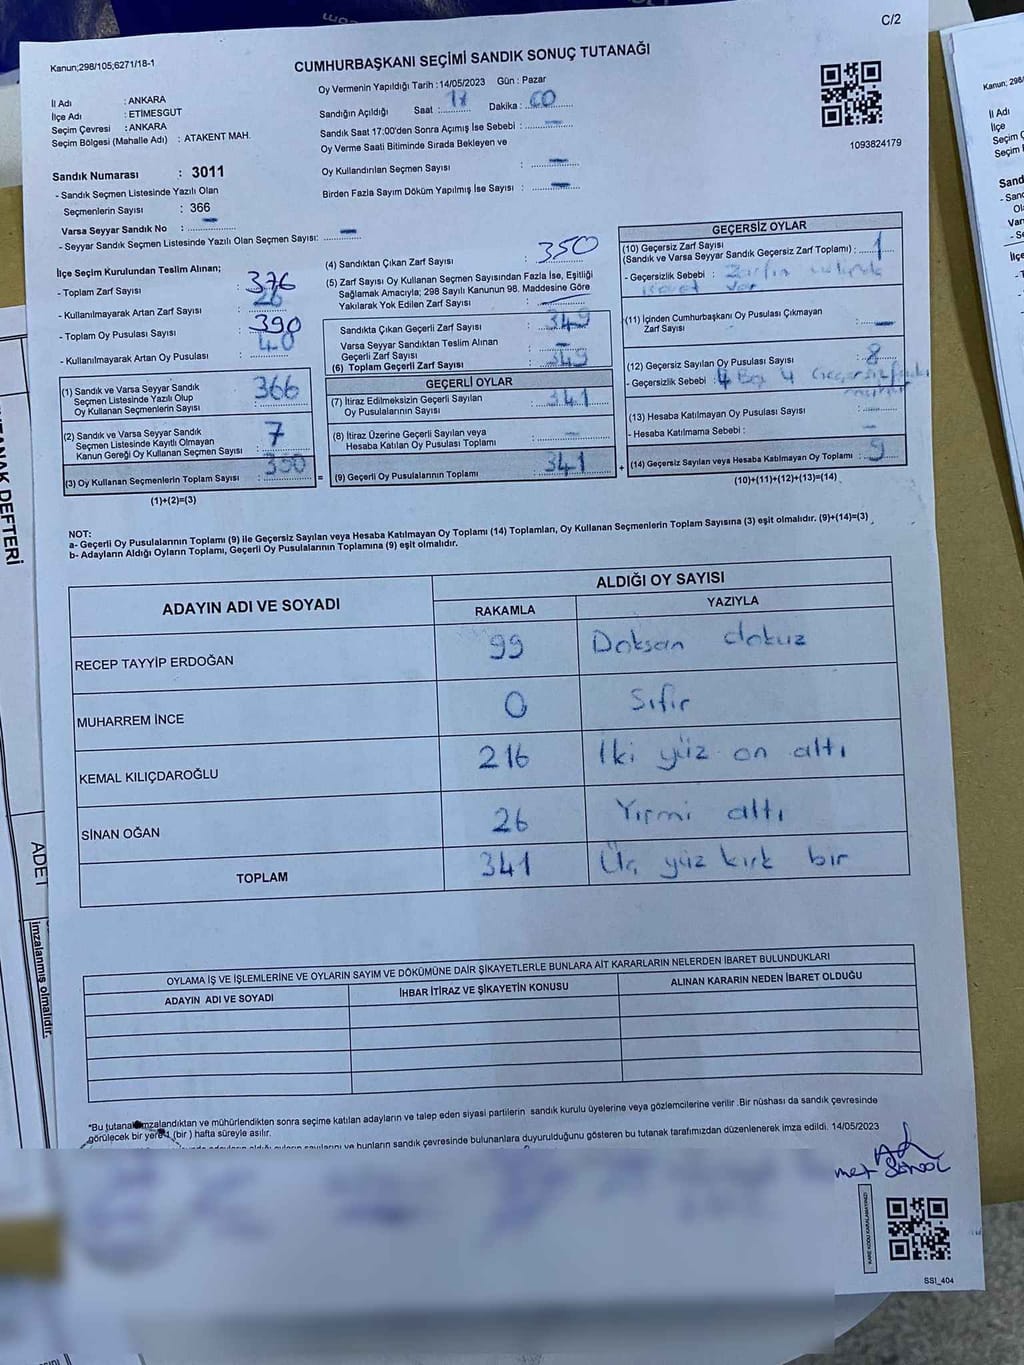 C/2
Kanun;298/105;6271/18-1
CUMHURBAŞKANI SEÇİMİ SANDIK SONUÇ TUTANAĞI
Oy Vermenin Yapıldığı Tarih :14/05/2023 Gün : Pazar
İl Adı : ANKARA
İlçe Adı : ETİMESGUT
Seçim Çevresi : ANKARA
Seçim Bölgesi (Mahalle Adı) : ATAKENT MAH.
Sandığın Açıldığı Saat : Dakika :
Sandık Saat 17:00'den Sonra Açımış İse Sebebi : —
Oy Verme Saati Bitiminde Sırada Bekleyen ve
Oy Kullandırılan Seçmen Sayısı : —
Birden Fazla Sayım Döküm Yapılmış İse Sayısı : —
1093824179
Sandık Numarası : 3011
- Sandık Seçmen Listesinde Yazılı Olan
Seçmenlerin Sayısı : 366
Varsa Seyyar Sandık No : —
- Seyyar Sandık Seçmen Listesinde Yazılı Olan Seçmen Sayısı: —
İlçe Seçim Kurulundan Teslim Alınan;
- Toplam Zarf Sayısı : 376
- Kullanılmayarak Artan Zarf Sayısı : 26
- Toplam Oy Pusulası Sayısı : 390
- Kullanılmayarak Artan Oy Pusulası : 40
(1) Sandık ve Varsa Seyyar Sandık
Seçmen Listesinde Yazılı Olup
Oy Kullanan Seçmenlerin Sayısı : 366
(2) Sandık ve Varsa Seyyar Sandık
Seçmen Listesinde Kayıtlı Olmayan
Kanun Gereği Oy Kullanan Seçmen Sayısı : 7
(3) Oy Kullanan Seçmenlerin Toplam Sayısı : 350
(1)+(2)=(3)
(4) Sandıktan Çıkan Zarf Sayısı : 350
(5) Zarf Sayısı Oy Kullanan Seçmen Sayısından Fazla İse, Eşitliği
Sağlamak Amacıyla; 298 Sayılı Kanunun 98. Maddesine Göre
Yakılarak Yok Edilen Zarf Sayısı : —
Sandıkta Çıkan Geçerli Zarf Sayısı : 349
Varsa Seyyar Sandıktan Teslim Alınan
Geçerli Zarf Sayısı : —
(6) Toplam Geçerli Zarf Sayısı : 349
GEÇERLİ OYLAR
(7) İtiraz Edilmeksizin Geçerli Sayılan
Oy Pusulalarının Sayısı : 341
(8) İtiraz Üzerine Geçerli Sayılan veya
Hesaba Katılan Oy Pusulası Toplamı : —
= (9) Geçerli Oy Pusulalarının Toplamı : 341
GEÇERSİZ OYLAR
(10) Geçersiz Zarf Sayısı
(Sandık ve Varsa Seyyar Sandık Geçersiz Zarf Toplamı) : 1
- Geçersizlik Sebebi : Zarfın
işaret var
(11) İçinden Cumhurbaşkanı Oy Pusulası Çıkmayan
Zarf Sayısı : —
(12) Geçersiz Sayılan Oy Pusulası Sayısı : 8
- Geçersizlik Sebebi : 4 Boş 4 Geçersiz
(13) Hesaba Katılmayan Oy Pusulası Sayısı :
- Hesaba Katılmama Sebebi : —
+ (14) Geçersiz Sayılan veya Hesaba Katılmayan Oy Toplamı : 9
(10)+(11)+(12)+(13)=(14)
NOT:
a- Geçerli Oy Pusulalarının Toplamı (9) ile Geçersiz Sayılan veya Hesaba Katılmayan Oy Toplamı (14) Toplamları, Oy Kullanan Seçmenlerin Toplam Sayısına (3) eşit olmalıdır. (9)+(14)=(3)
b- Adayların Aldığı Oyların Toplamı, Geçerli Oy Pusulalarının Toplamına (9) eşit olmalıdır.
ADAYIN ADI VE SOYADI ALDIĞI OY SAYISI
RAKAMLA YAZIYLA
RECEP TAYYİP ERDOĞAN 99 Doksan dokuz
MUHARREM İNCE 0 Sıfır
KEMAL KILIÇDAROĞLU 216 İki yüz on altı
SİNAN OĞAN 26 Yirmi altı
TOPLAM 341 Üç yüz kırk bir
OYLAMA İŞ VE İŞLEMLERİNE VE OYLARIN SAYIM VE DÖKÜMÜNE DAİR ŞİKAYETLERLE BUNLARA AİT KARARLARIN NELERDEN İBARET BULUNDUKLARI
ADAYIN ADI VE SOYADI İHBAR İTİRAZ VE ŞİKAYETİN KONUSU ALINAN KARARIN NEDEN İBARET OLDUĞU
*Bu tutanak imzalandıktan ve mühürlendikten sonra seçime katılan adayların ve talep eden siyasi partilerin sandık kurulu üyelerine veya gözlemcilerine verilir .Bir nüshası da sandık çevresinde
görülecek bir yere 1 (bir ) hafta süreyle asılır.
sayıları ve bunların sandık çevresinde bulunanlara duyurulduğunu gösteren bu tutanak tarafımızdan düzenlenerek imza edildi. 14/05/2023
SSI_404
TANAK DEFTERİ
ADET
imzalanmış olmalıdır.
Kanun; 298
İl Adı
İlçe
Seçim
Seçim